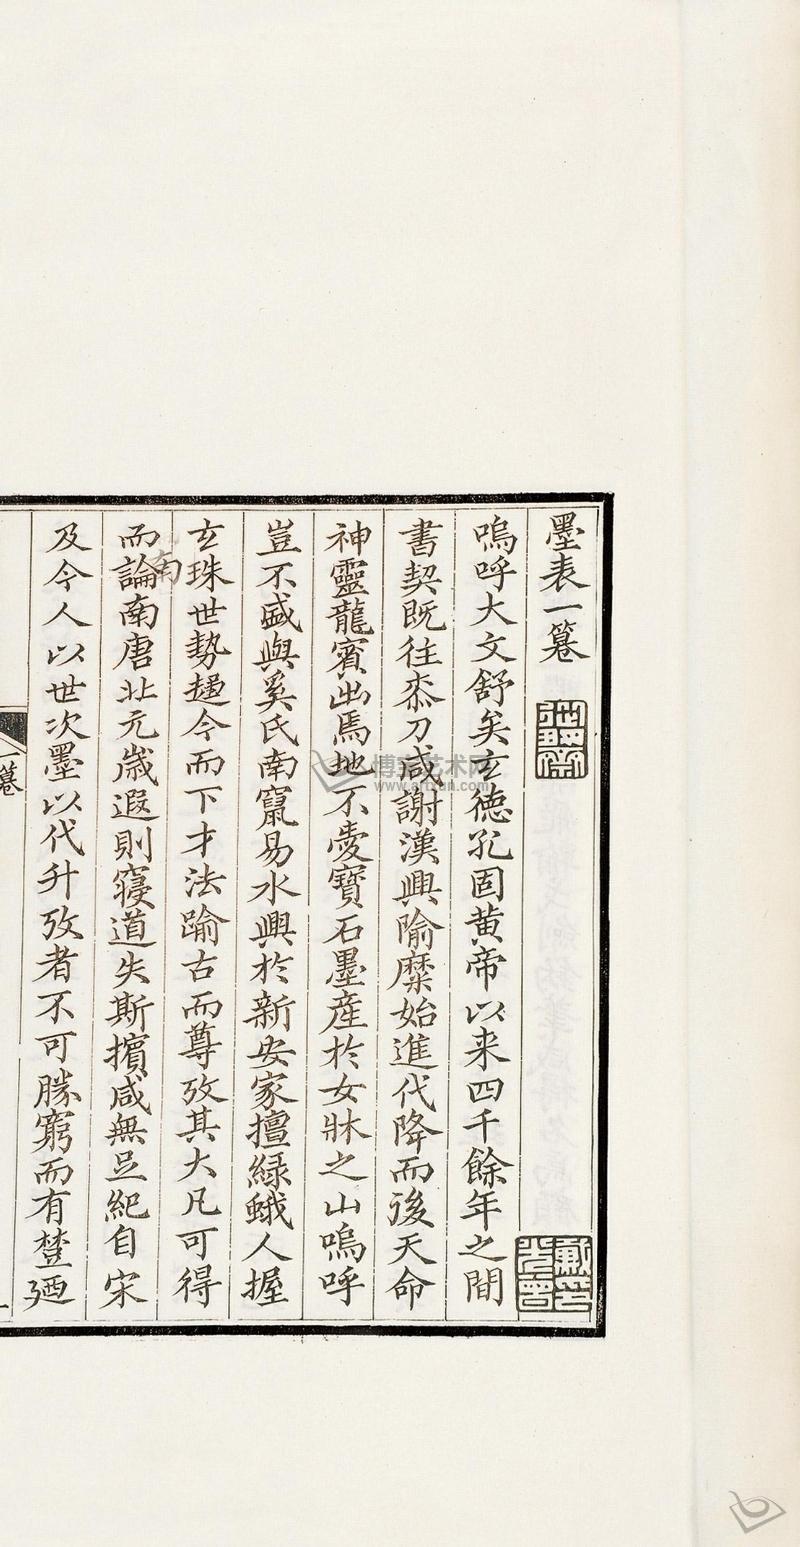 墨表一纂
嗚呼大文舒矣玄德孔固黄帝以来四千餘年之間
書契既往桼刀咸謝漢興隃糜始進代降而後天命
神靈龍賓出焉地不愛寶石墨産於女牀之山嗚呼
豈不盛與奚氏南竄易水興於新安家擅緑蛾人握
玄珠世勢趨今而下才法踰古而尊攷其大凡可得
而論南唐北元嵗遐則寖道失斯擯咸無足紀自宋
及今人以世次墨以代升攷者不可勝窮而有
南
博宝艺术网
www.artxun.com